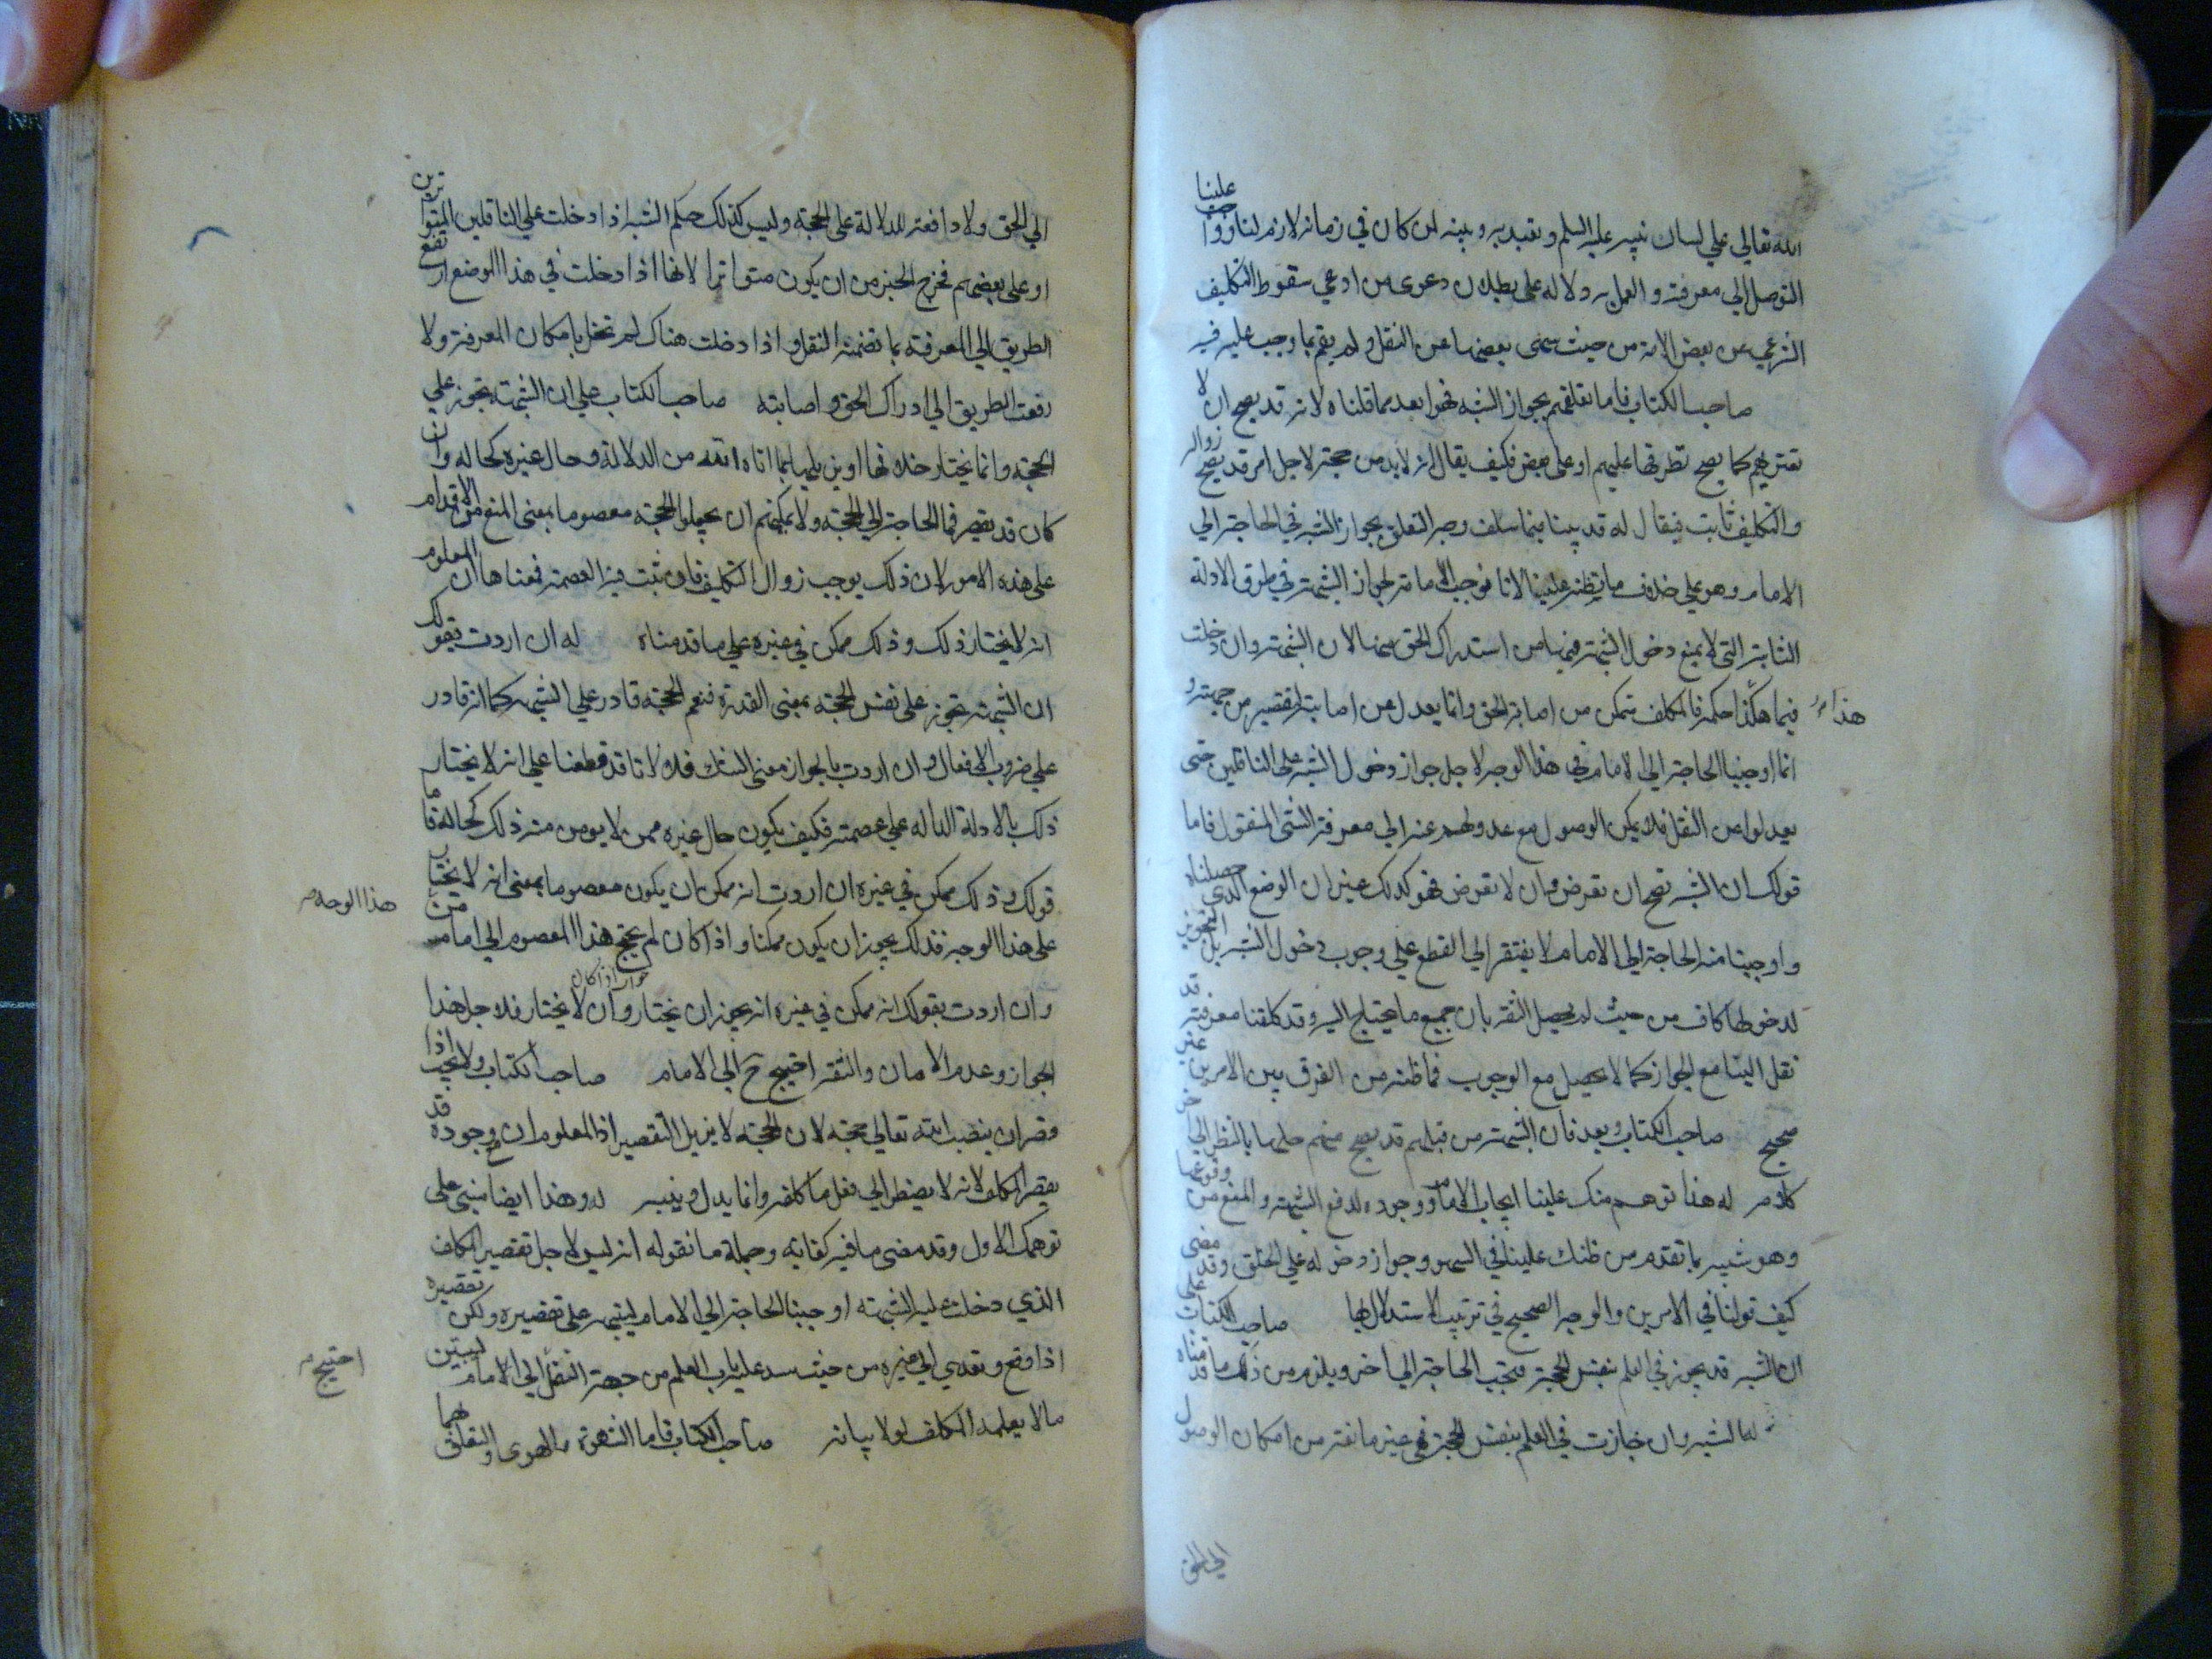 علينا
الله تعالي علي لسان نبيه عليه السلم وتعبد به وبينه لمن كان في زمانه لازم لنا وواجب
التوصل الي معرفته والعمل به ودلاله على بطلان دعوى من ادعي سقوط التكليف
الشرعي عن بعض الامة من حيث سهى بعضها عن النقل ولم يقم بما وجب عليه فيه
صاحب الكتاب فاما تعلقهم بجواز الشبه فهوا بعد مما قلناه لانه قد يصح ان لا
تعتريهم كما يصح تطرقها عليهم او على بعض فكيف يقال انه لابد من حجة لاجل امر قد يصح زواله
والتكليف ثابت فيقال له قد بينا فيما سلف وجه التعلق بجواز الشبه في الحاجة الي
الامام وهو علي خلاف ما تظنه علينا لانا لا نوجب الامامة لجواز الشبهة في طرق الادلة
الثابتة التي لا يمنع دخول الشبهة فيها من استدراك الحق منها لان الشبهة وان دخلت
فيما هذا حكمه فالمكلف متمكن من اصابة الحق وانما يعدل عن اصابته لتقصير من جهته و
هذا
انما اوجبنا الحاجة الي الامام في هذا الوجه لاجل جواز دخول الشبه على الناقلين حتى
يعدلوا عن النقل فلا يمكن الوصول مع عدولهم عنه الي معرفة الشئ المنقول فاما
قولك ان الشبه تصح ان تعرض وان لا تعرض فهو كذلك غير ان الوضع الذي حصلناه
واوجبنا منه الحاجة الي الامام لا يفتقر الي القطع علي وجوب دخول الشبه بل التجويز
لدخولها كاف من حيث لم يحصل الثقة بان جميع ما يحتاج اليه وقد كلفنا معرفته قد
نقل الينا مع الجواز كما لا يحصل مع الوجوب فما ظنه من الفرق بين الامرين غير
صحيح صاحب الكتاب وبعد فان الشبهة من قبلهم قد يصح منهم حلها بالنظر الي اخر
كلامه له هذا توهم منك علينا ايجاب الامام ووجوده لدفع الشبهة والمنع من وقوعها
وهو شبيه بما تقدم من ظنك علينا في السهو وجواز دخوله علي الخلق وقد مضى
كيف قولنا في الامرين والوجه الصحيح في ترتيب الاستدلال بها صاحب الكتاب على
ان الشبه قد يجوز في العلم بنفس الحجة فتجب الحاجة الي اخر ويلزم من ذلك ما قدمناه
له الشبه وان جازت في العلم بنفس الحجة فهي غير مانعة من امكان الوصول
الي الحق
الي الحق ولا دافعة للدلالة على الحجة وليس كذلك حكم الشبه اذا دخلت علي الناقلين المتواترين
او على بعضهم فخرج الخبر من ان يكون متواترا لانها اذا دخلت في هذا الوضع ارتفع
الطريق الي المعرفة بما تضمنه النقل واذا دخلت هناك لم تخل بامكان المعرفة ولا
رفعت الطريق الي ادراك الحق واصابته صاحب الكتاب علي ان الشبهة تجوز علي
الحجة وانما يختار خلافها او يزيلها بما اتاه الله من الدلالة وحال غيره كحاله وان
كان قد يقصر فما الحاجة الي الحجة ولا يمكنهم ان يجعلوا الحجة معصوما بمعنى المنع من الاقدام
على هذه الامور لان ذلك يوجب زوال التكليف فان ثبت فيه العصمة فمعناها ان المعلوم
انه لا يختار ذلك وذلك ممكن في غيره علي ما قدمناه له ان اردت بقولك
ان الشبهة تجوز على نفس الحجة بمعنى القدرة فنعم الحجة قادر علي الشبهة كما انه قادر
علي ضروب الافعال وان اردت بالجواز معنى الشك فلا لانا قد قطعنا علي انه لا يختار
ذلك بالادلة الدالة علي عصمته فكيف يكون حال غيره ممن لا يومن منه ذلك كحاله فاما
قولك وذلك ممكن في غيره ان اردت انه ممكن ان يكون معصوما بمعنى انه لا يختار
على هذا الوجه فذلك يجوز ان يكون ممكنا واذا كان لم يحتج هذا المعصوم الي امام
هذا الوجه
وان اردت بقولك انه ممكن في غيره انه يجوز ان يختار وان لا يختار فلاجل هذا
الجواز وعدم الامان والثقة احتيج ح الي الامام صاحب الكتاب ولا يجب اذا
قصر ان ينصب الله تعالي حجة لان الحجة لا يزيل التقصير اذا المعلوم ان مع وجوده قد
يقصر المكلف لانه لا يضطر الي فعل ما كلفه وانما يدل وينبه له وهذا ايضا مبني على
توهمك الاول وقد مضى ما فيه كفاية وجملة ما نقوله انه ليس لاجل تقصير المكلف
الذي دخلت عليه الشبهة اوجبنا الحاجة الي الامام لينبهه على تقصيره ولكن تقصيره
اذا وقع وتعدي الي غيره من حيث سد عليه باب العلم من جهة النقل الي الامام ليبين
احتيج
مالا يعلمه المكلف لولا بيانه صاحب الكتاب فاما الشهوة والهوى والتعلق بهما